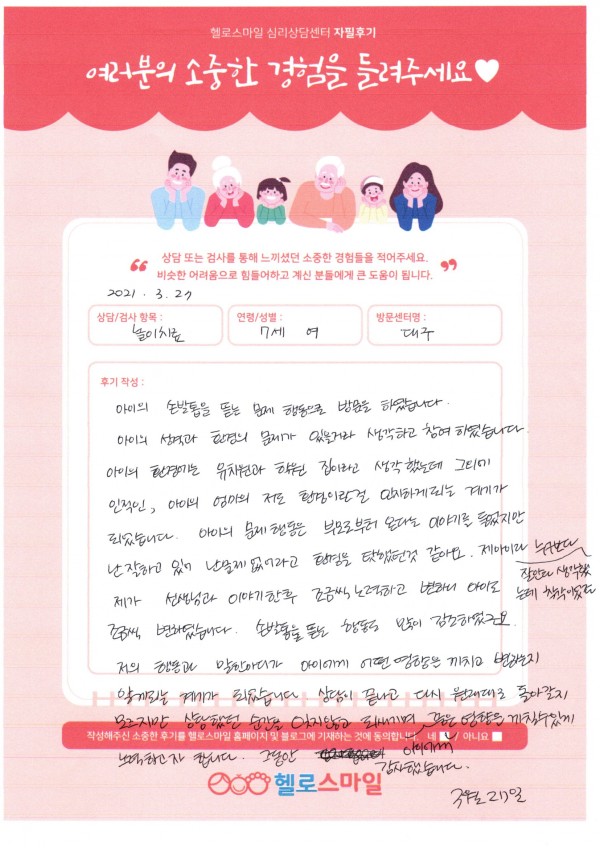 헬로스마일 심리상담센터 자필후기
여러분의 소중한 경험을 들려주세요♥
상담 또는 검사를 통해 느끼셨던 소중한 경험들을 적어주세요.
비슷한 어려움으로 힘들어하고 계신 분들에게 큰 도움이 됩니다.
2021. 3. 27
상담/검사 항목 : 놀이치료
연령/성별 : 7세 여
방문센터명 : 대구
후기 작성 :
아이의 손발톱을 뜯는 문제 행동으로 방문을 하였습니다.
아이의 성격과 환경의 문제가 있을거라 생각하고 참여하였습니다.
아이의 환경에는 유치원과 학원 집이라고 생각했는데 그외에
인적인, 아이의 엄마의 저도 환경이란걸 인지하게되는 계기가
되었습니다. 아이의 문제 행동은 부모로부터 온다는 이야기를 들었지만
난 잘하고 있어 난 문제 없어라고 환경을 탓했던것 같아요. 제아이라 누구보다
잘안다 생각했
는데 착각이었구
제가 선생님과 이야기한후 조금씩 노력하고 변화하니 아이도
조금씩 변화였습니다. 손발톱을 뜯는 행동도 많이 감소하였구요.
저의 행동과 말한마디가 아이에게 어떤 영향을 끼치고 변하는지
알게되는 계기가 되었습니다. 상담이 끝나고 다시 원래대로 돌아갈지
모르지만 상담했던 순간을 잊지않고 되새기며 좋은 영향을 끼칠수있게
작성해주신 소중한 후기를 헬로스마일 홈페이지 및 블로그에 기재하는 것에 동의합니다. 네 / 아니요
노력하고자 합니다. 그동안
감사했습니다.
헬로스마일